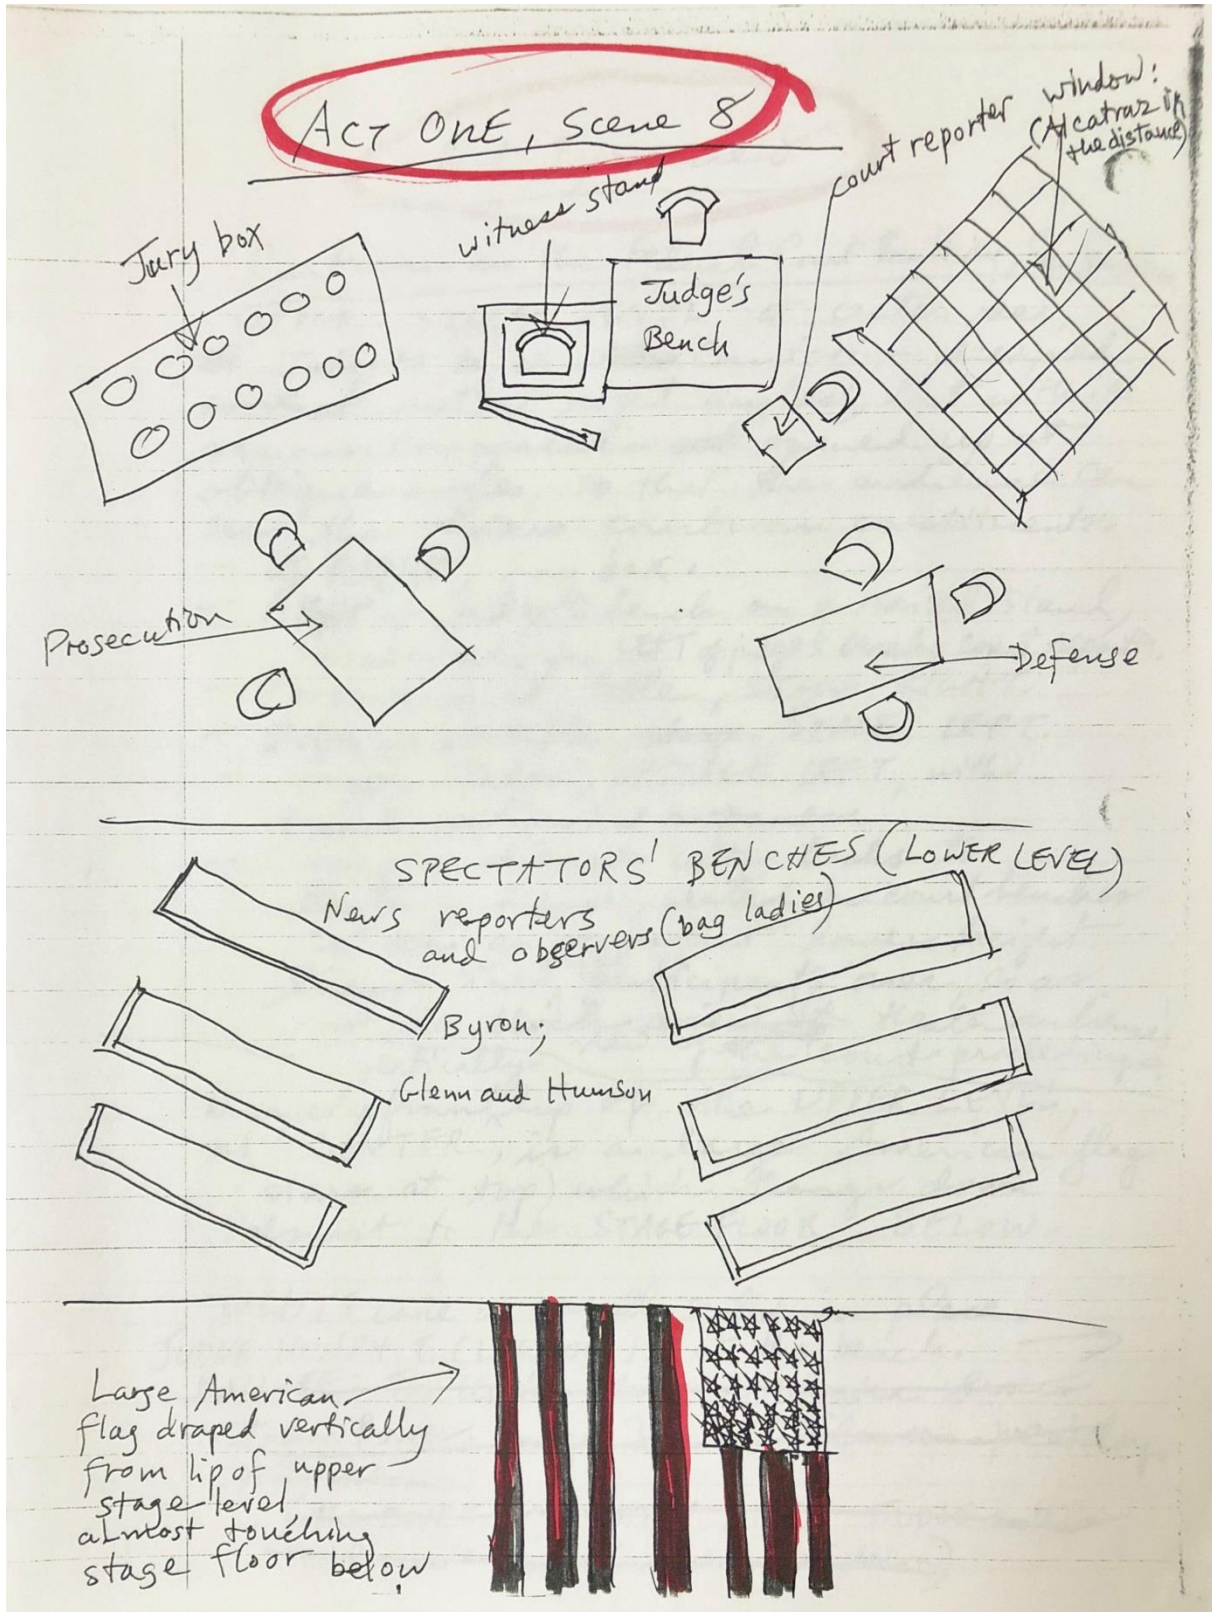 Act One, Scene 8
Jury box
witness stand
court reporter
window:
(Alcatraz in
the distance)
Judge's
Bench
Prosecution
Defense
SPECTATORS' BENCHES (LOWER LEVEL)
News reporters
and observers (bag ladies)
Byron;
Glenn and Humson
Large American
flag draped vertically
from lip of upper
stage level
almost touching
stage floor below